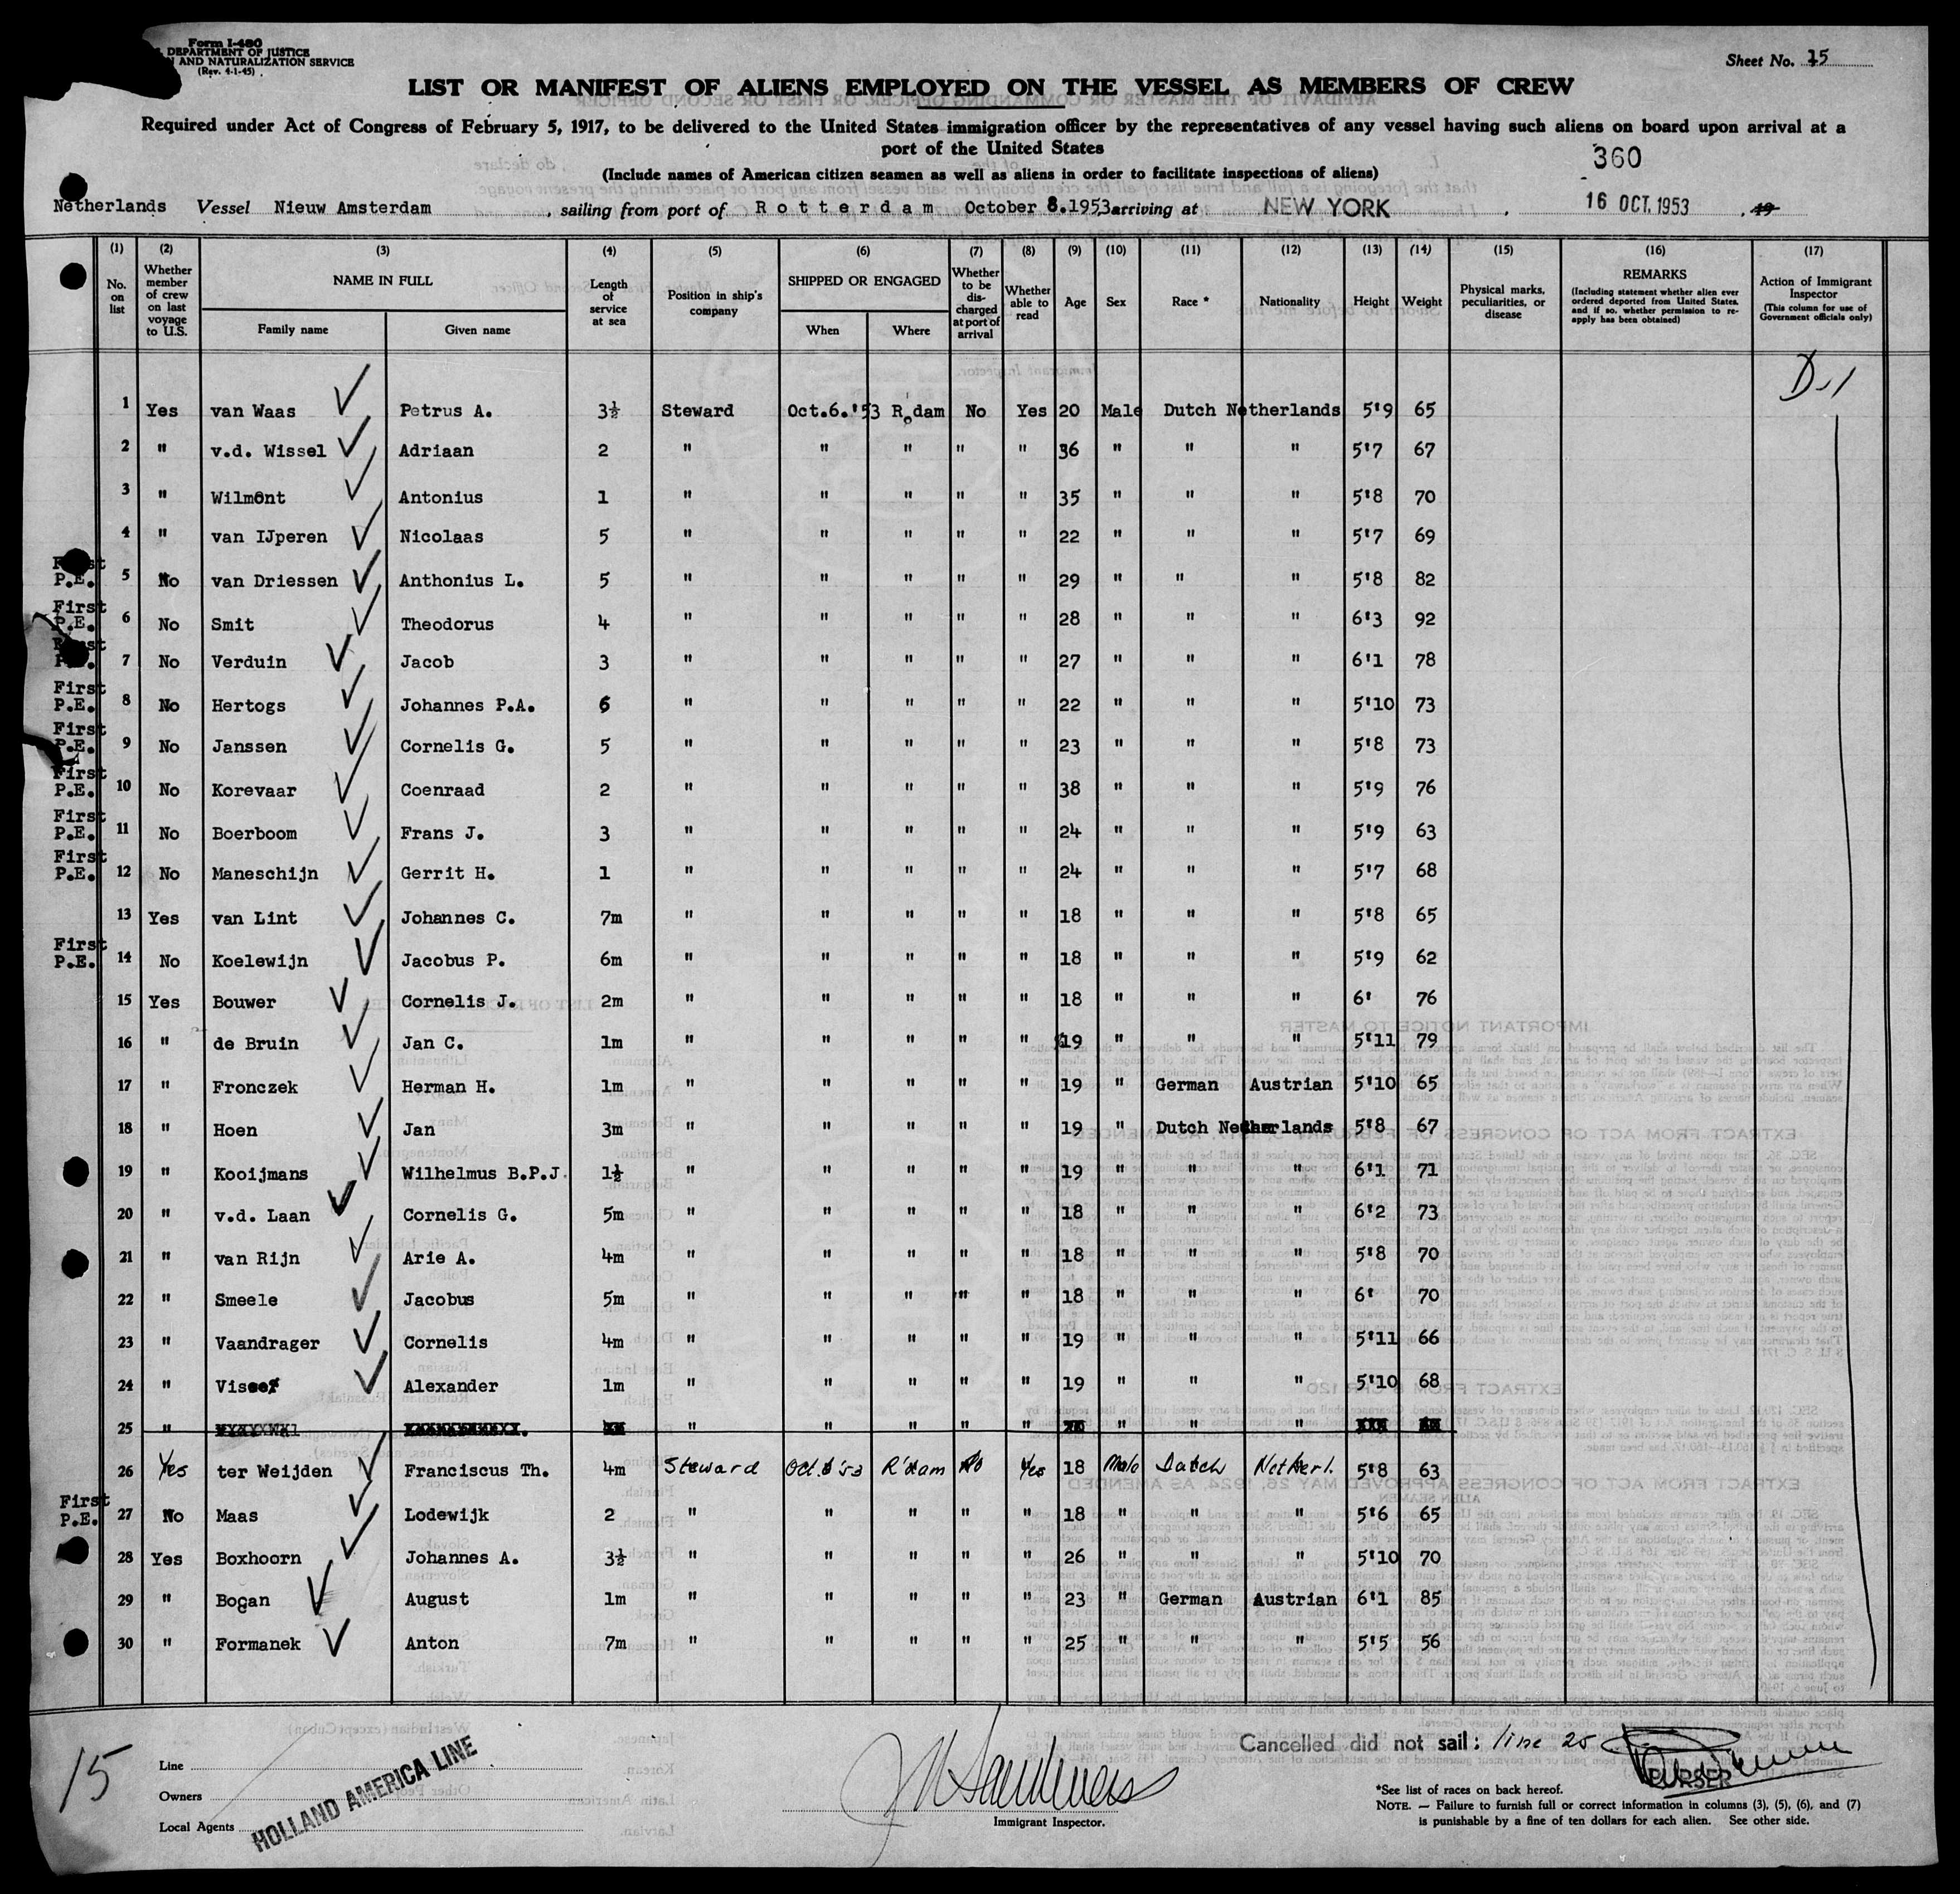 Form I-480
DEPARTMENT OF JUSTICE
AND NATURALIZATION SERVICE
(Rev. 4-1-45)
Sheet No. 15
LIST OR MANIFEST OF ALIENS EMPLOYED ON THE VESSEL AS MEMBERS OF CREW
Required under Act of Congress of February 5, 1917, to be delivered to the United States immigration officer by the representatives of any vessel having such aliens on board upon arrival at a
port of the United States
360
(Include names of American citizen seamen as well as aliens in order to facilitate inspections of aliens)
Netherlands Vessel Nieuw Amsterdam, sailing from port of Rotterdam October 8.1953 arriving at NEW YORK, 16 OCT. 1953, 19
(1) (2) (3) (4) (5) (6) (7) (8) (9) (10) (11) (12) (13) (14) (15) (16) (17)
No. on list Whether member of crew on last voyage to U.S. NAME IN FULL Family name Given name Length of service at sea Position in ship's company SHIPPED OR ENGAGED When Where Whether to be discharged at port of arrival Whether able to read Age Sex Race * Nationality Height Weight Physical marks, peculiarities, or disease REMARKS (Including statement whether alien ever ordered deported from United States, and if so, whether permission to re-apply has been obtained) Action of Immigrant Inspector (This column for use of Government officials only)
D-1
1 Yes van Waas Petrus A. 3½ Steward Oct.6.'53 R'dam No Yes 20 Male Dutch Netherlands 5'9 65
2 " v.d. Wissel Adriaan 2 " " " " " 36 " " " 5'7 67
3 " Wilmont Antonius 1 " " " " " 35 " " " 5'8 70
4 " van IJperen Nicolaas 5 " " " " " 22 " " " 5'7 69
First P.E. 5 No van Driessen Anthonius L. 5 " " " " " 29 " " " 5'8 82
First P.E. 6 No Smit Theodorus 4 " " " " " 28 " " " 6'3 92
First P.E. 7 No Verduin Jacob 3 " " " " " 27 " " " 6'1 78
First P.E. 8 No Hertogs Johannes P.A. 6 " " " " " 22 " " " 5'10 73
First P.E. 9 No Janssen Cornelis G. 5 " " " " " 23 " " " 5'8 73
First P.E. 10 No Korevaar Coenraad 2 " " " " " 38 " " " 5'9 76
First P.E. 11 No Boerboom Frans J. 3 " " " " " 24 " " " 5'9 63
First P.E. 12 No Maneschijn Gerrit H. 1 " " " " " 24 " " " 5'7 68
13 Yes van Lint Johannes C. 7m " " " " " 18 " " " 5'8 65
First P.E. 14 No Koelewijn Jacobus P. 6m " " " " " 18 " " " 5'9 62
15 Yes Bouwer Cornelis J. 2m " " " " " 18 " " " 6' 76
16 " de Bruin Jan C. 1m " " " " " 19 " " " 5'11 79
17 " Fronczek Herman H. 1m " " " " " 19 " German Austrian 5'10 65
18 " Hoen Jan 3m " " " " " 19 " Dutch Netherlands 5'8 67
19 " Kooijmans Wilhelmus B.P.J. 1½ " " " " " 19 " " " 6'1 71
20 " v.d. Laan Cornelis G. 5m " " " " " 18 " " " 6'2 73
21 " van Rijn Arie A. 4m " " " " " 18 " " " 5'8 70
22 " Smeele Jacobus 5m " " " " " 18 " " " 6' 70
23 " Vaandrager Cornelis 4m " " " " " 19 " " " 5'11 66
24 " Visser Alexander 1m " " " " " 19 " " " 5'10 68
25 " " " " " " " " "
26 Yes ter Weijden Franciscus Th. 4m Steward Oct.6'53 R'dam No Yes 18 Male Dutch Netherl. 5'8 63
First P.E. 27 No Maas Lodewijk 2 " " " " " 18 " " " 5'6 65
28 Yes Boxhoorn Johannes A. 3½ " " " " " 26 " " " 5'10 70
29 " Bogan August 1m " " " " " 23 " German Austrian 6'1 85
30 " Formanek Anton 7m " " " " " 25 " " " 5'5 56
15
Line
Owners
Local Agents
HOLLAND AMERICA LINE
Immigrant Inspector.
Cancelled did not sail: line 25
PURSER
*See list of races on back hereof.
NOTE. — Failure to furnish full or correct information in columns (3), (5), (6), and (7)
is punishable by a fine of ten dollars for each alien. See other side.